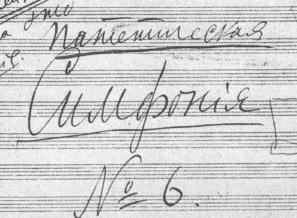 Патетическая
Симфонія
№ 6.